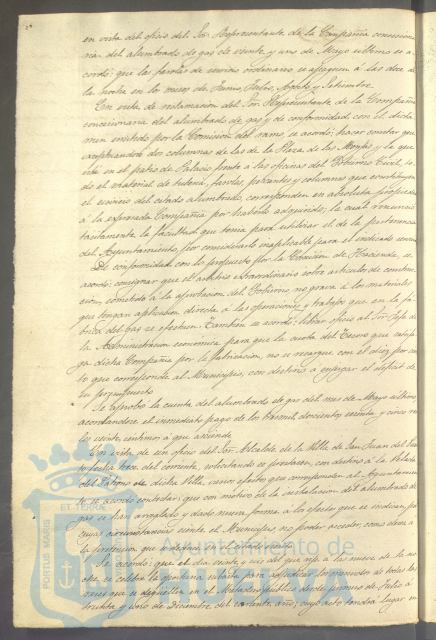 en vista del oficio del Sor. Representante de la Compañia concesiona-
ria del alumbrado de gas de veinte y uno de Mayo último se a-
cordó: que las farolas de servicio ordinario se apaguen á las doce de
la noche en los meses de Junio, Julio, Agosto y Setiembre.
En vista de reclamacion del Sor. Representante de la Compañia
concesionaria del alumbrado de gas y de conformidad con el dictá-
men emitido por la Comision del ramo, se acordó: hacer constar que
exceptuando dos columnas de las de la Plaza de las Monjas y la que
está en el patio de Palacio frente á las oficinas del Gobierno Civil, to-
do el material de tuberia, faroles, pescantes y columnas que constituyen
el servicio del citado alumbrado, corresponden en absoluta propiedad
á la espresada Compañia por haberlo adquirido, la cual renunció
tacitamente la facultad que tenia para utilizar el de la pertenencia
del Ayuntamiento, por considerarlo inaplicable para el indicado servicio
De conformidad con lo propuesto por la Comision de Hacienda, se
acordó: consignar que el arbitrio extraordinario sobre articulos de combus-
tion, sometido á la aprobacion del Gobierno, no grava á los materiales
que tengan aplicacion directa á las operaciones y trabajos que en la fá-
brica del gas se efectuen. Tambien se acordó: librar oficio al Sor. Jefe de
la Administracion económica para que la cuota del Tesoro que satisfa-
ga dicha Compañia por la fabricacion, no se recargue con el diez por cien-
to que corresponde al Municipio, con destino á enjugar el déficit de
su presupuesto.
Se aprobó la cuenta del alumbrado de gas del mes de Mayo último
acordandose el inmediato pago de los tresmil doscientos sesenta y cinco rea-
les veinte céntimos á que asciende.
En vista de un oficio del Sor. Alcalde de la Villa de San Juan del Puer-
to fecha trece del corriente, solicitando se prestasen, con destino á la Velada
del Patrono de dicha Villa, varios efectos que corresponden al Ayuntamien-
to, se acordó contestar: que con motivo de la instalacion del alumbrado de
gas se han arreglado y dado nueva forma á los efectos que se indican, por
cuyas circunstancias siente el Municipio, no poder acceder, como desea á
la peticion que se deduce en el citado oficio.
Se acordó: que el dia veinte y seis del que rije á las nueve de la no-
che, se celebre la quintena subasta para adjudicar los menudos de todas las
reses que se degüellen en el Matadero público desde primero de Julio á
treinta y uno de Diciembre del corriente año; cuyo acto tendrá lugar en
PORTUS MARIS
ET TERRÆ
Ayuntamiento de
HUELVA